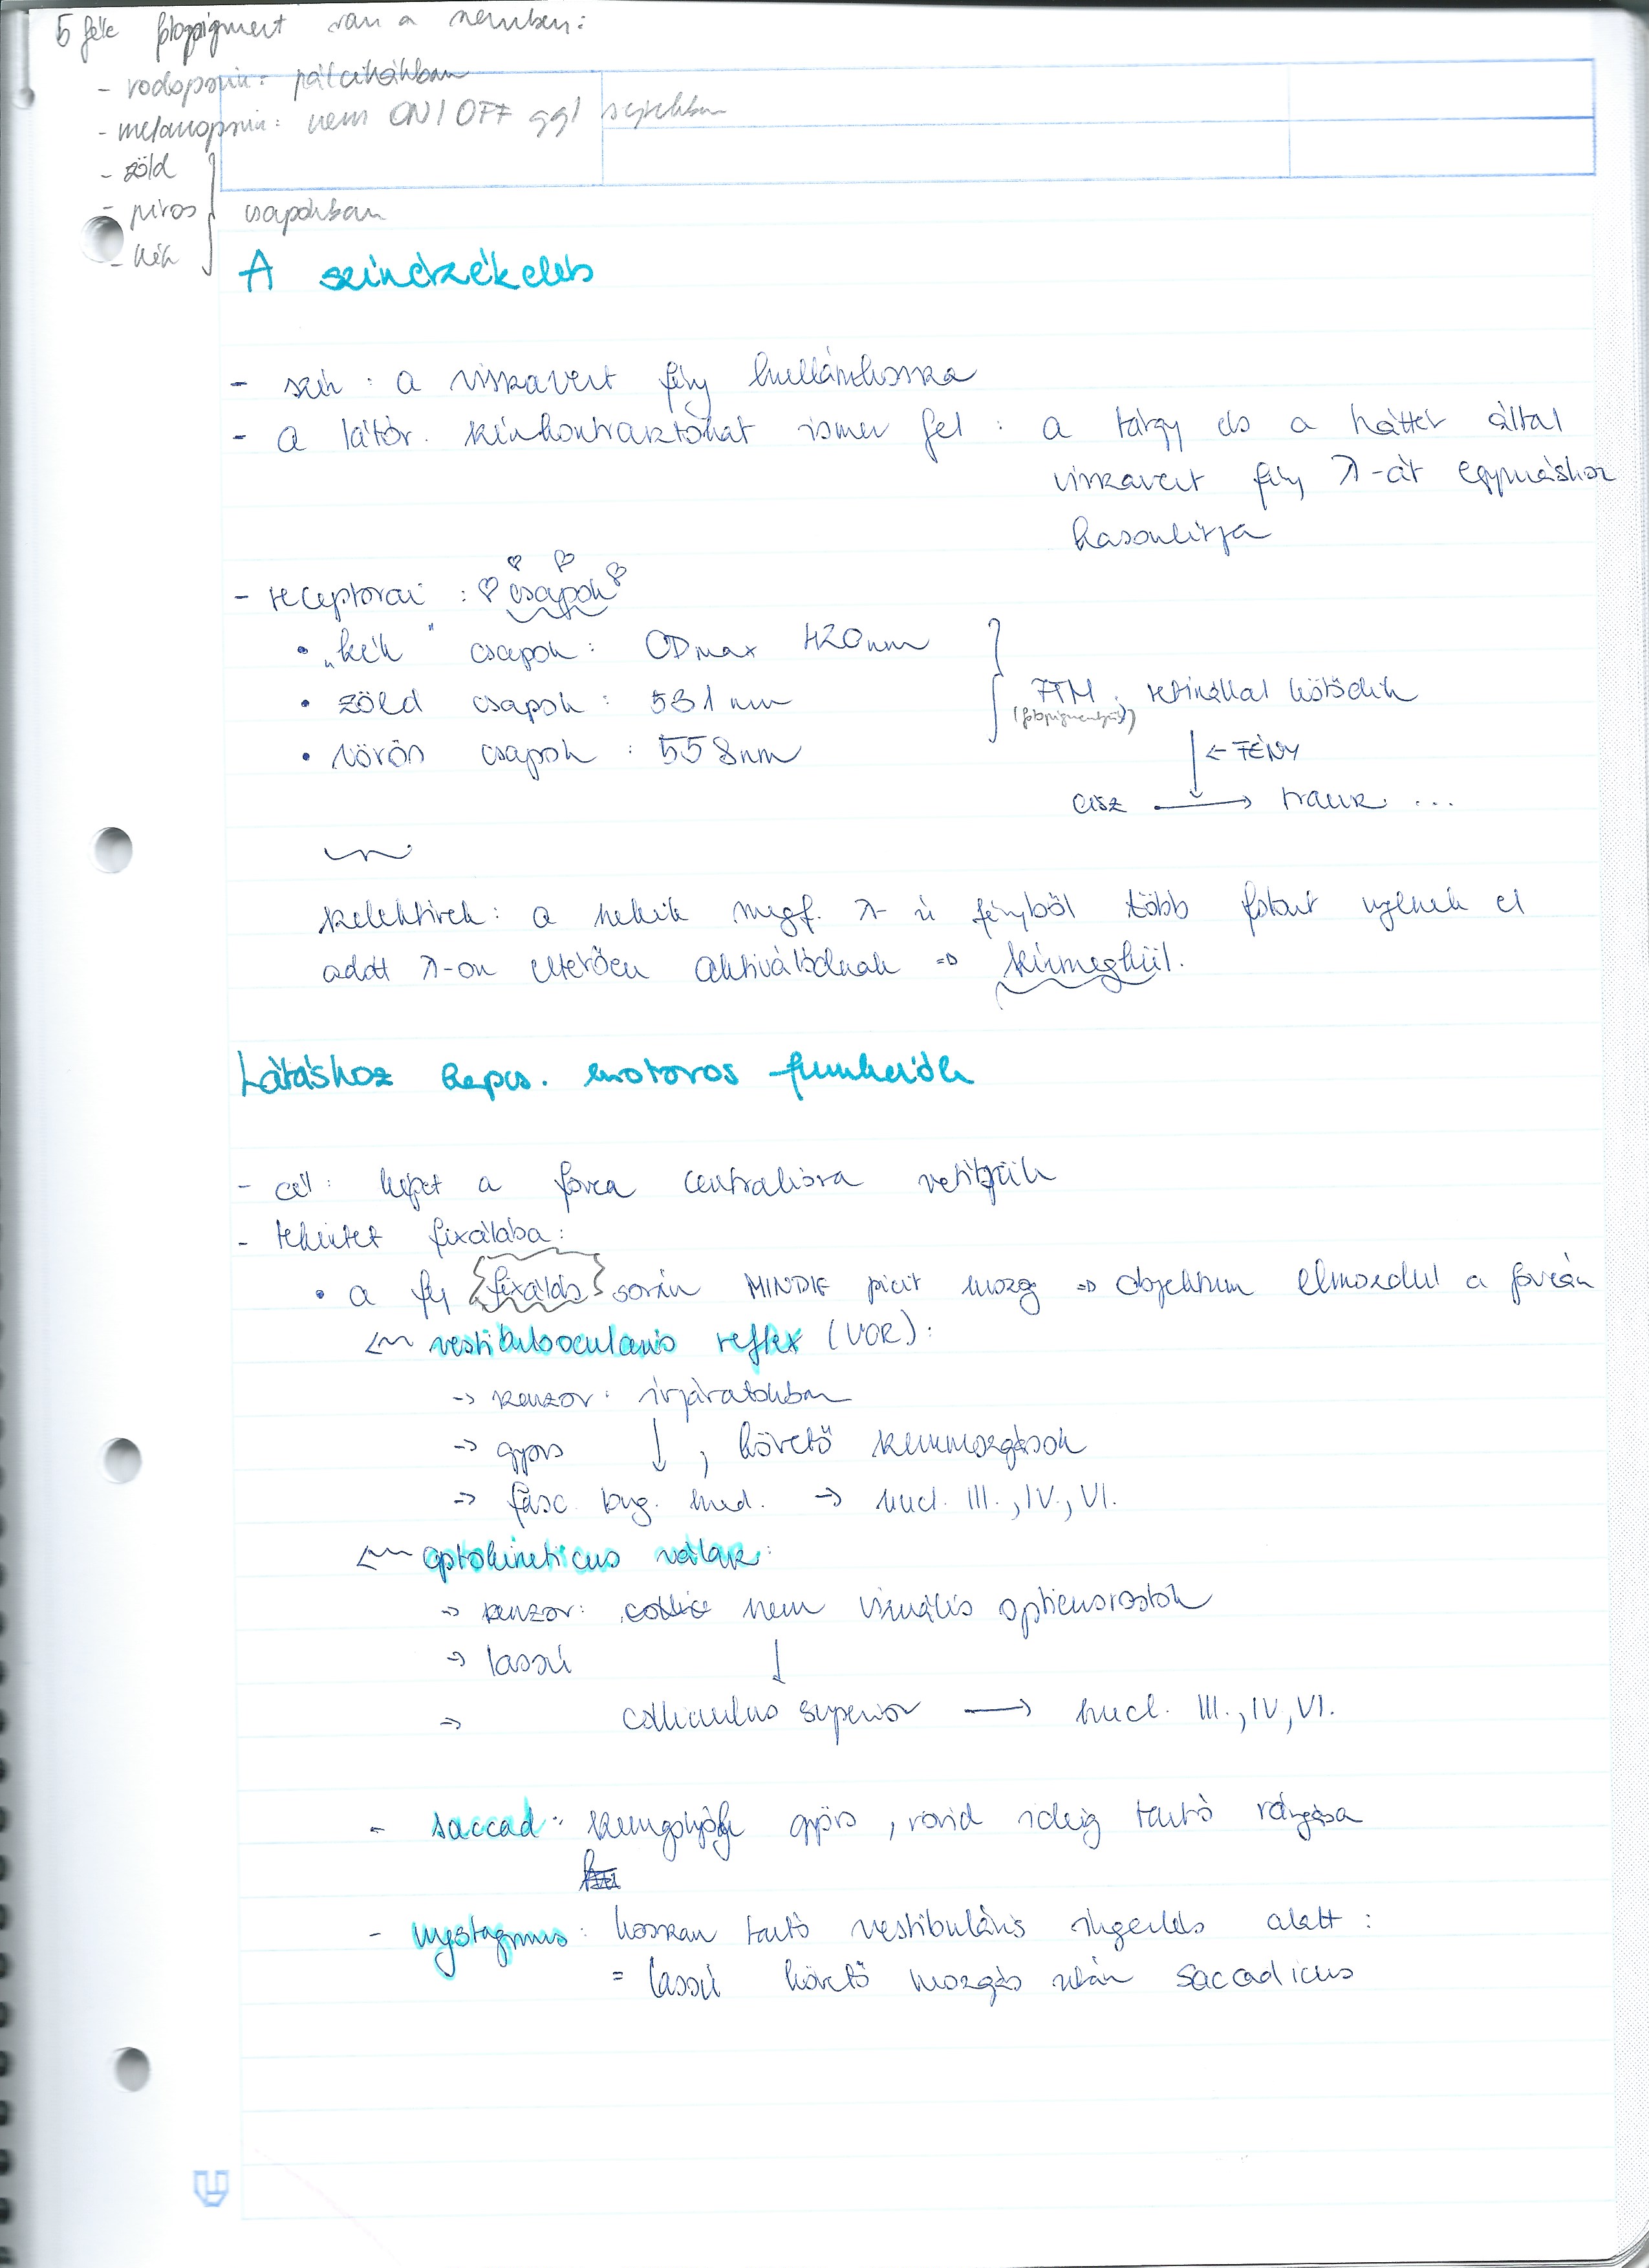 5 féle fotopigment van a szemben:
- rodopszin: pálcikákban
- melanopszin: nem ON/OFF ggl sejtekben
- zöld
- piros } csapokban
- kék
A színérzékelés
- szín: a visszavert fény hullámhossza
- a látór. színkontrasztokat ismer fel: a tárgy és a háttér által
visszavert fény λ-át egymáshoz
hasonlítja
- receptorai: csapok
• „kék" csapok: ODmax 420nm
• zöld csapok: 531nm
• vörös csapok: 558nm
} 7TM: retinállal kötődik
(fotopigmentjük)
← FÉNY
cisz → transz ...
szelektívek: a nekik megf. λ-ú fényből több fotont nyelnek el
adott λ-on eltérően aktiválódnak ⇒ színmegkül.
Látáshoz kapcs. motoros funkciók
- cél: képet a fovea centralisra vetítjük
- tekintet fixálása:
• a fej fixálás során MINDIG picit mozog ⇒ objektum elmozdul a foveán
← vestibuloocularis reflex (VOR):
→ szenzor: ívjáratokban
→ gyors ↓, követő szemmozgások
→ fasc. long. med. → nucl. III., IV., VI.
← optokineticus válasz:
→ szenzor: nem vizuális opticusrostok
→ lassú ↓
→ colliculus superior → nucl. III., IV, VI.
- saccad: szemgolyók gyors, rövid ideig tartó rángása
- nystagmus: hosszan tartó vestibuláris ingerlés alatt:
= lassú követő mozgás után saccadicus